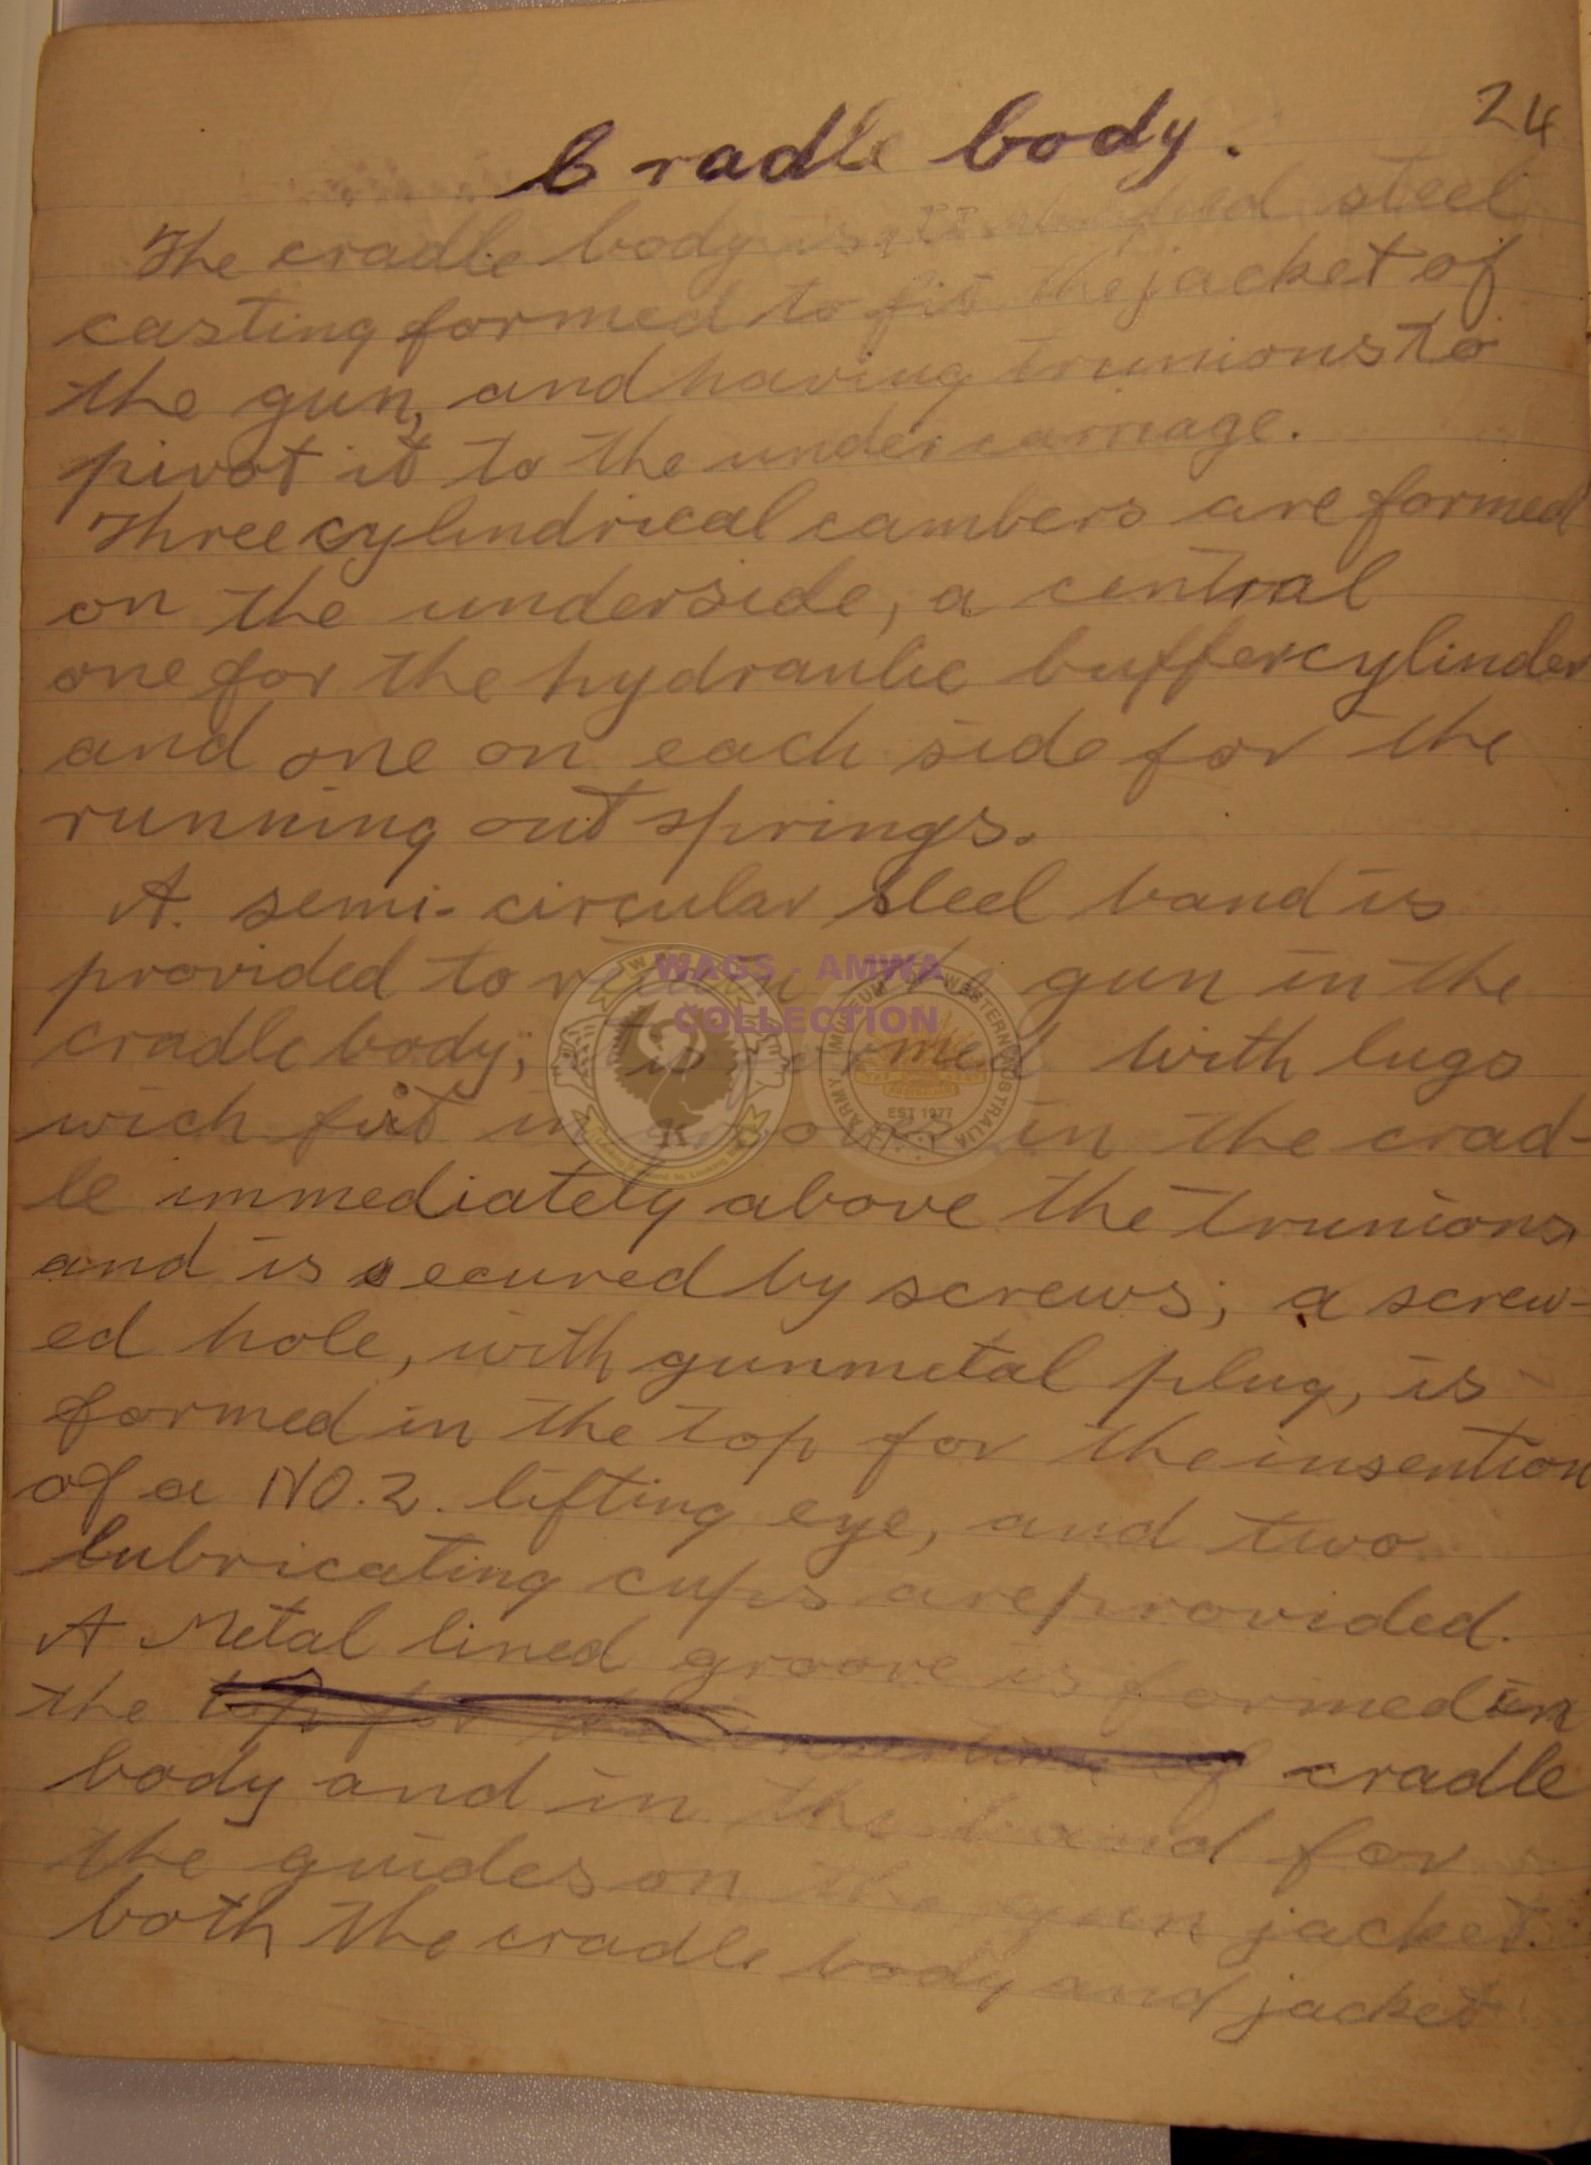 24
Cradle body.
The cradle body is steel
casting formed to fit the jacket of
the gun, and having trunions to
pivot it to the undercarriage.
Three cylindrical cambers are formed
on the underside, a central
one for the hydraulic buffer cylinder
and one on each side for the
running out springs.
A. semi-circular steel band is
provided to retain the gun in the
cradle body; it is formed with lugs
wich fit in in the crad-
le immediately above the trunions
and is secured by screws; a screw-
ed hole, with gunmetal plug, is
formed in the top for the insention
of a NO. 2. lifting eye, and two
lubricating cups are provided.
A Metal lined groove is formed in
the top for the insertion of cradle
body and in the band for
the guides on the gun jacket.
both the cradle body and jacket
WAGS - AMWA
COLLECTION
ARMY MUSEUM OF WESTERN AUSTRALIA
EST 1977